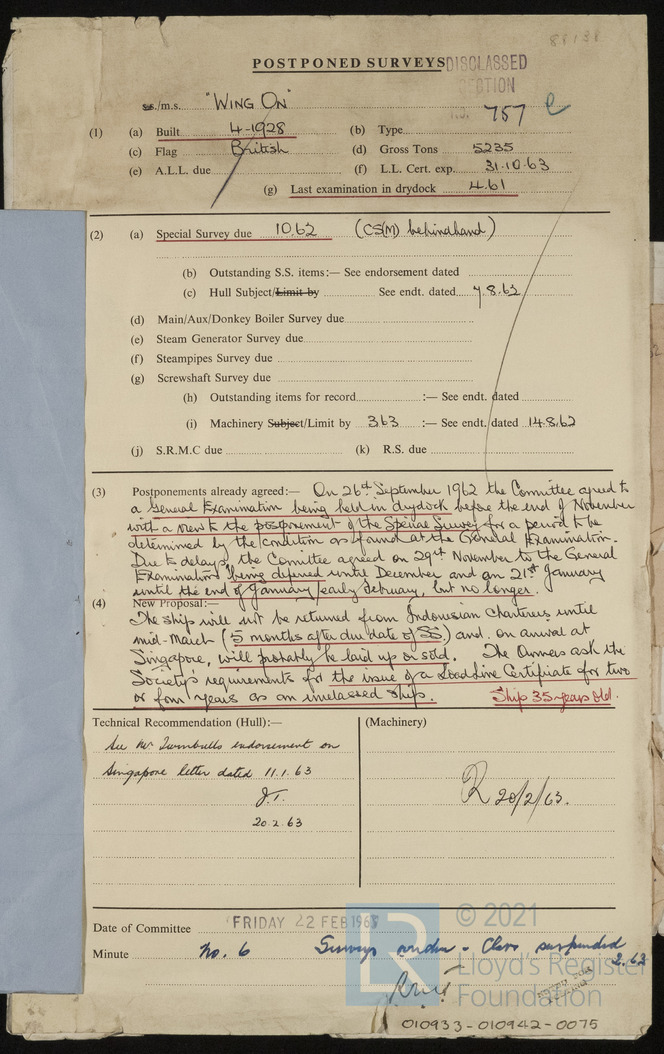 88131
POSTPONED SURVEYS
DISCLASSED
SECTION
ss./m.s. "WING ON" No. 757
(1) (a) Built 4-1928 (b) Type
(c) Flag British (d) Gross Tons 5235
(e) A.L.L. due (f) L.L. Cert. exp. 31.10.63
(g) Last examination in drydock 4.61
(2) (a) Special Survey due 10.62 (CS(M) behindhand)
(b) Outstanding S.S. items:— See endorsement dated
(c) Hull Subject/Limit by See endt. dated 7.8.62
(d) Main/Aux/Donkey Boiler Survey due
(e) Steam Generator Survey due
(f) Steampipes Survey due
(g) Screwshaft Survey due
(h) Outstanding items for record :— See endt. dated
(i) Machinery Subject/Limit by 3.63 :— See endt. dated 14.8.62
(j) S.R.M.C due (k) R.S. due
(3) Postponements already agreed:— On 26th September 1962 the Committee agreed to
a General Examination being held in drydock before the end of November
with a view to the postponement of the Special Survey for a period to be
determined by the condition as found at the General Examination.
Due to delays, the Committee agreed on 29th November to the General
Examination being deferred until December and on 21st January
until the end of January/early February, but no longer.
(4) New Proposal:—
The ship will not be returned from Indonesian Charterers until
mid-March (5 months after due date of SS) and on arrival at
Singapore, will probably be laid up or sold. The Owners ask the
Society's requirements for the issue of a Load Line Certificate for two
or four years as an unclassed ship. Ship 35 years old.
Technical Recommendation (Hull):— (Machinery)
See Mr Turnbulls endorsement on
Singapore letter dated 11.1.63
J.T.
20.2.63
R 20/2/63.
Date of Committee FRIDAY 22 FEB 1963
Minute No. 6 Surveys overdue - Class suspended
2.63
© 2021
Lloyd's Register
Foundation
010933-010942-0075